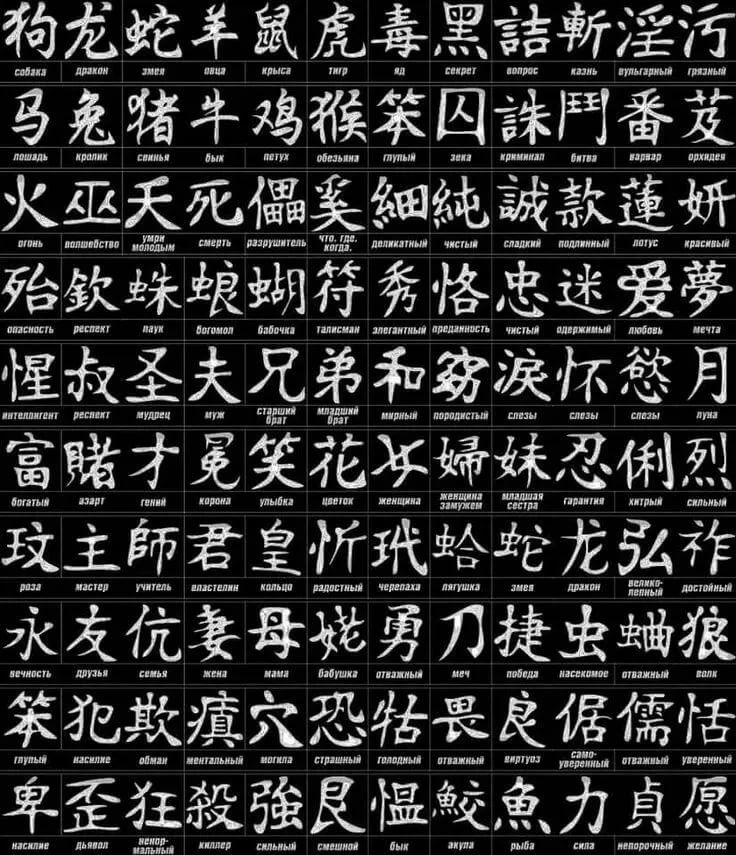 狗 龙 蛇 羊 鼠 虎 毒 黑 詰 斬 淫 污
собака дракон змея овца крыса тигр яд секрет вопрос казнь вульгарный грязный
马 兔 猪 牛 鸡 猴 笨 囚 誅 鬥 番 芨
лошадь кролик свинья бык петух обезьяна глупый зека криминал битва варвар орхидея
火 巫 夭 死 儡 奚 細 純 誠 款 蓮 妍
огонь волшебство умри молодым смерть разрушитель что. где. когда. деликатный чистый сладкий подлинный лотус красивый
殆 欽 蛛 蜋 蝴 符 秀 恪 忠 迷 爱 夢
опасность респект паук богомол бабочка талисман элегантный преданность чистый одержимый любовь мечта
惺 叔 圣 夫 兄 弟 和 窈 淚 怀 慾 月
интеллигент респект мудрец муж старший брат младший брат мирный породистый слезы слезы слезы луна
富 賭 才 冕 笑 花 女 婦 妹 忍 俐 烈
богатый азарт гений корона улыбка цветок женщина женщина замужем младшая сестра гарантия хитрый сильный
玟 主 師 君 皇 忻 玳 蛤 蛇 龙 弘 祚
роза мастер учитель властелин кольцо радостный черепаха лягушка змея дракон велико-лепный достойный
永 友 伉 妻 母 姥 勇 刀 捷 虫 蛐 狼
вечность друзья семья жена мама бабушка отважный меч победа насекомое отважный волк
笨 犯 欺 瘨 穴 恐 牯 畏 良 倨 儒 恬
глупый насилие обман ментальный могила страшный голодный отважный виртуоз само-уверенный отважный уверенный
卑 歪 狂 殺 強 艮 愠 鮫 魚 力 貞 愿
насилие дьявол ненор-мальный киллер сильный смешной бык акула рыба сила непорочный желание